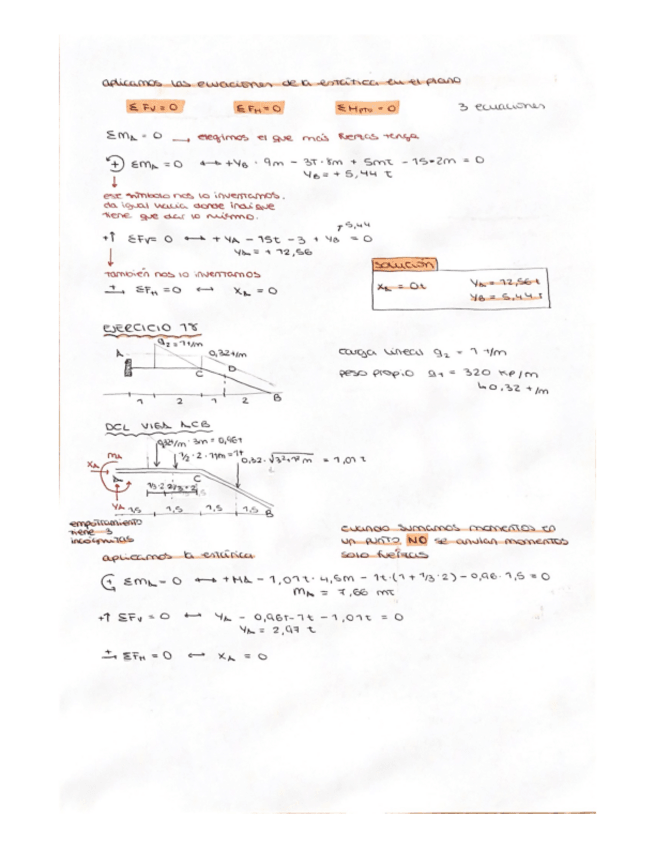 aplicamos las ecuaciones de la estática en el plano
ΣFv=0 ΣFH=0 ΣMpto=0 3 ecuaciones
ΣMA=0 → elegimos el que más fuerzas tenga
+ ΣMA=0 ↔ +YB · 9m - 3T·8m + 5mt - 15·2m = 0
YB = + 5,44 t
ese símbolo nos lo inventamos.
da igual hacia donde indique
tiene que dar lo mismo.
5,44
+↑ ΣFv= 0 ↔ + YA - 15t - 3 + YB = 0
YA = + 12,56
también nos lo inventamos
+→ ΣFH =0 ↔ XA = 0
SOLUCIÓN
XA = 0t YA = 12,56t
YB = 5,44 t
EJERCICIO 18
q2=1t/m
A 0,32t/m
C D
B
1 2 1 2
carga lineal q2 = 1 t/m
peso propio q1 = 320 kp/m
↳0,32 t/m
DCL VIGA ACB
0,32t/m · 3m = 0,96t
MA 1/2 · 2 · 1t/m = 1t
XA
A C
YA 1,5 1,5 1,5 1,5 B
empotramiento
tiene 3
incógnitas
cuando sumamos momentos en
un punto NO se anulan momentos
solo fuerzas
aplicamos la estática
ΣMA=0 ↔ +MA - 1,01t · 4,5m - 1t·(1 + 1/3·2) - 0,96 · 1,5 = 0
MA = 7,66 mt
+↑ ΣFv = 0 ↔ YA - 0,96t - 1t - 1,01t = 0
YA = 2,97 t
+→ ΣFH = 0 ↔ XA = 0